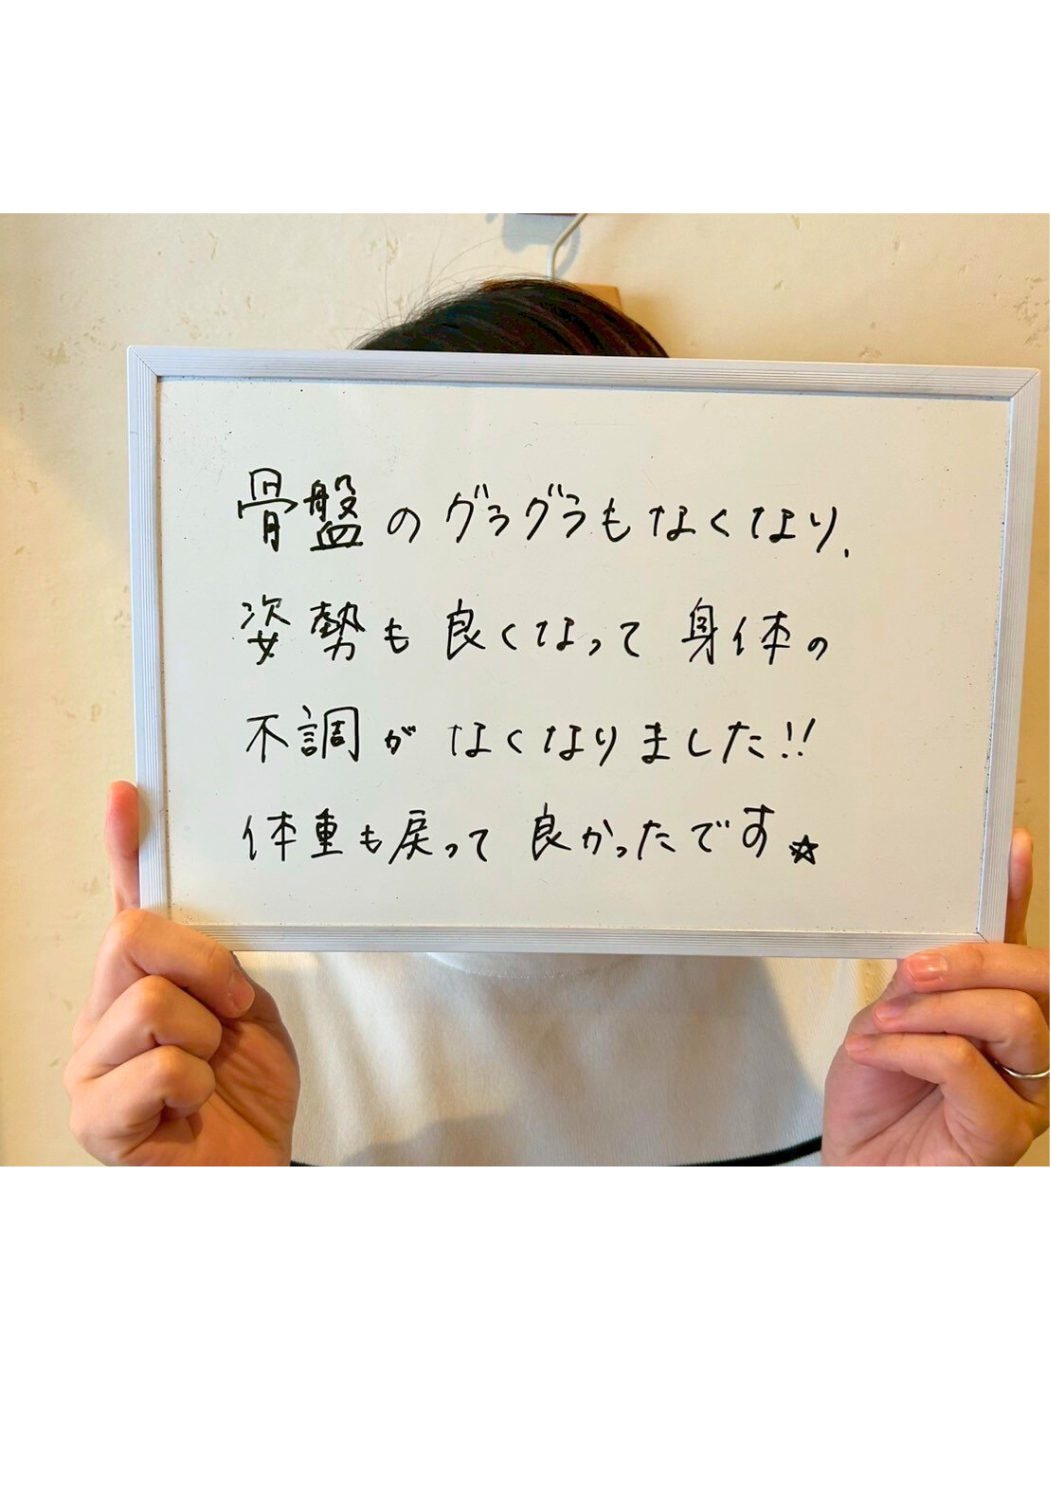 骨盤のグラグラもなくなり、
姿勢も良くなって身体の
不調がなくなりました!!
体重も戻って良かったです☆